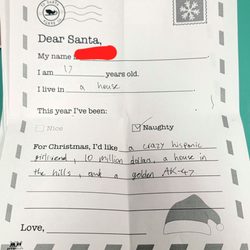 Dear Santa,
My name is
I am 17 years old.
I live in a house
This year I've been:
Nice Naughty
For Christmas, I'd like a crazy hispanic
girlfriend, 10 million dollars, a house in
the hills, and a golden AK-47
Love,